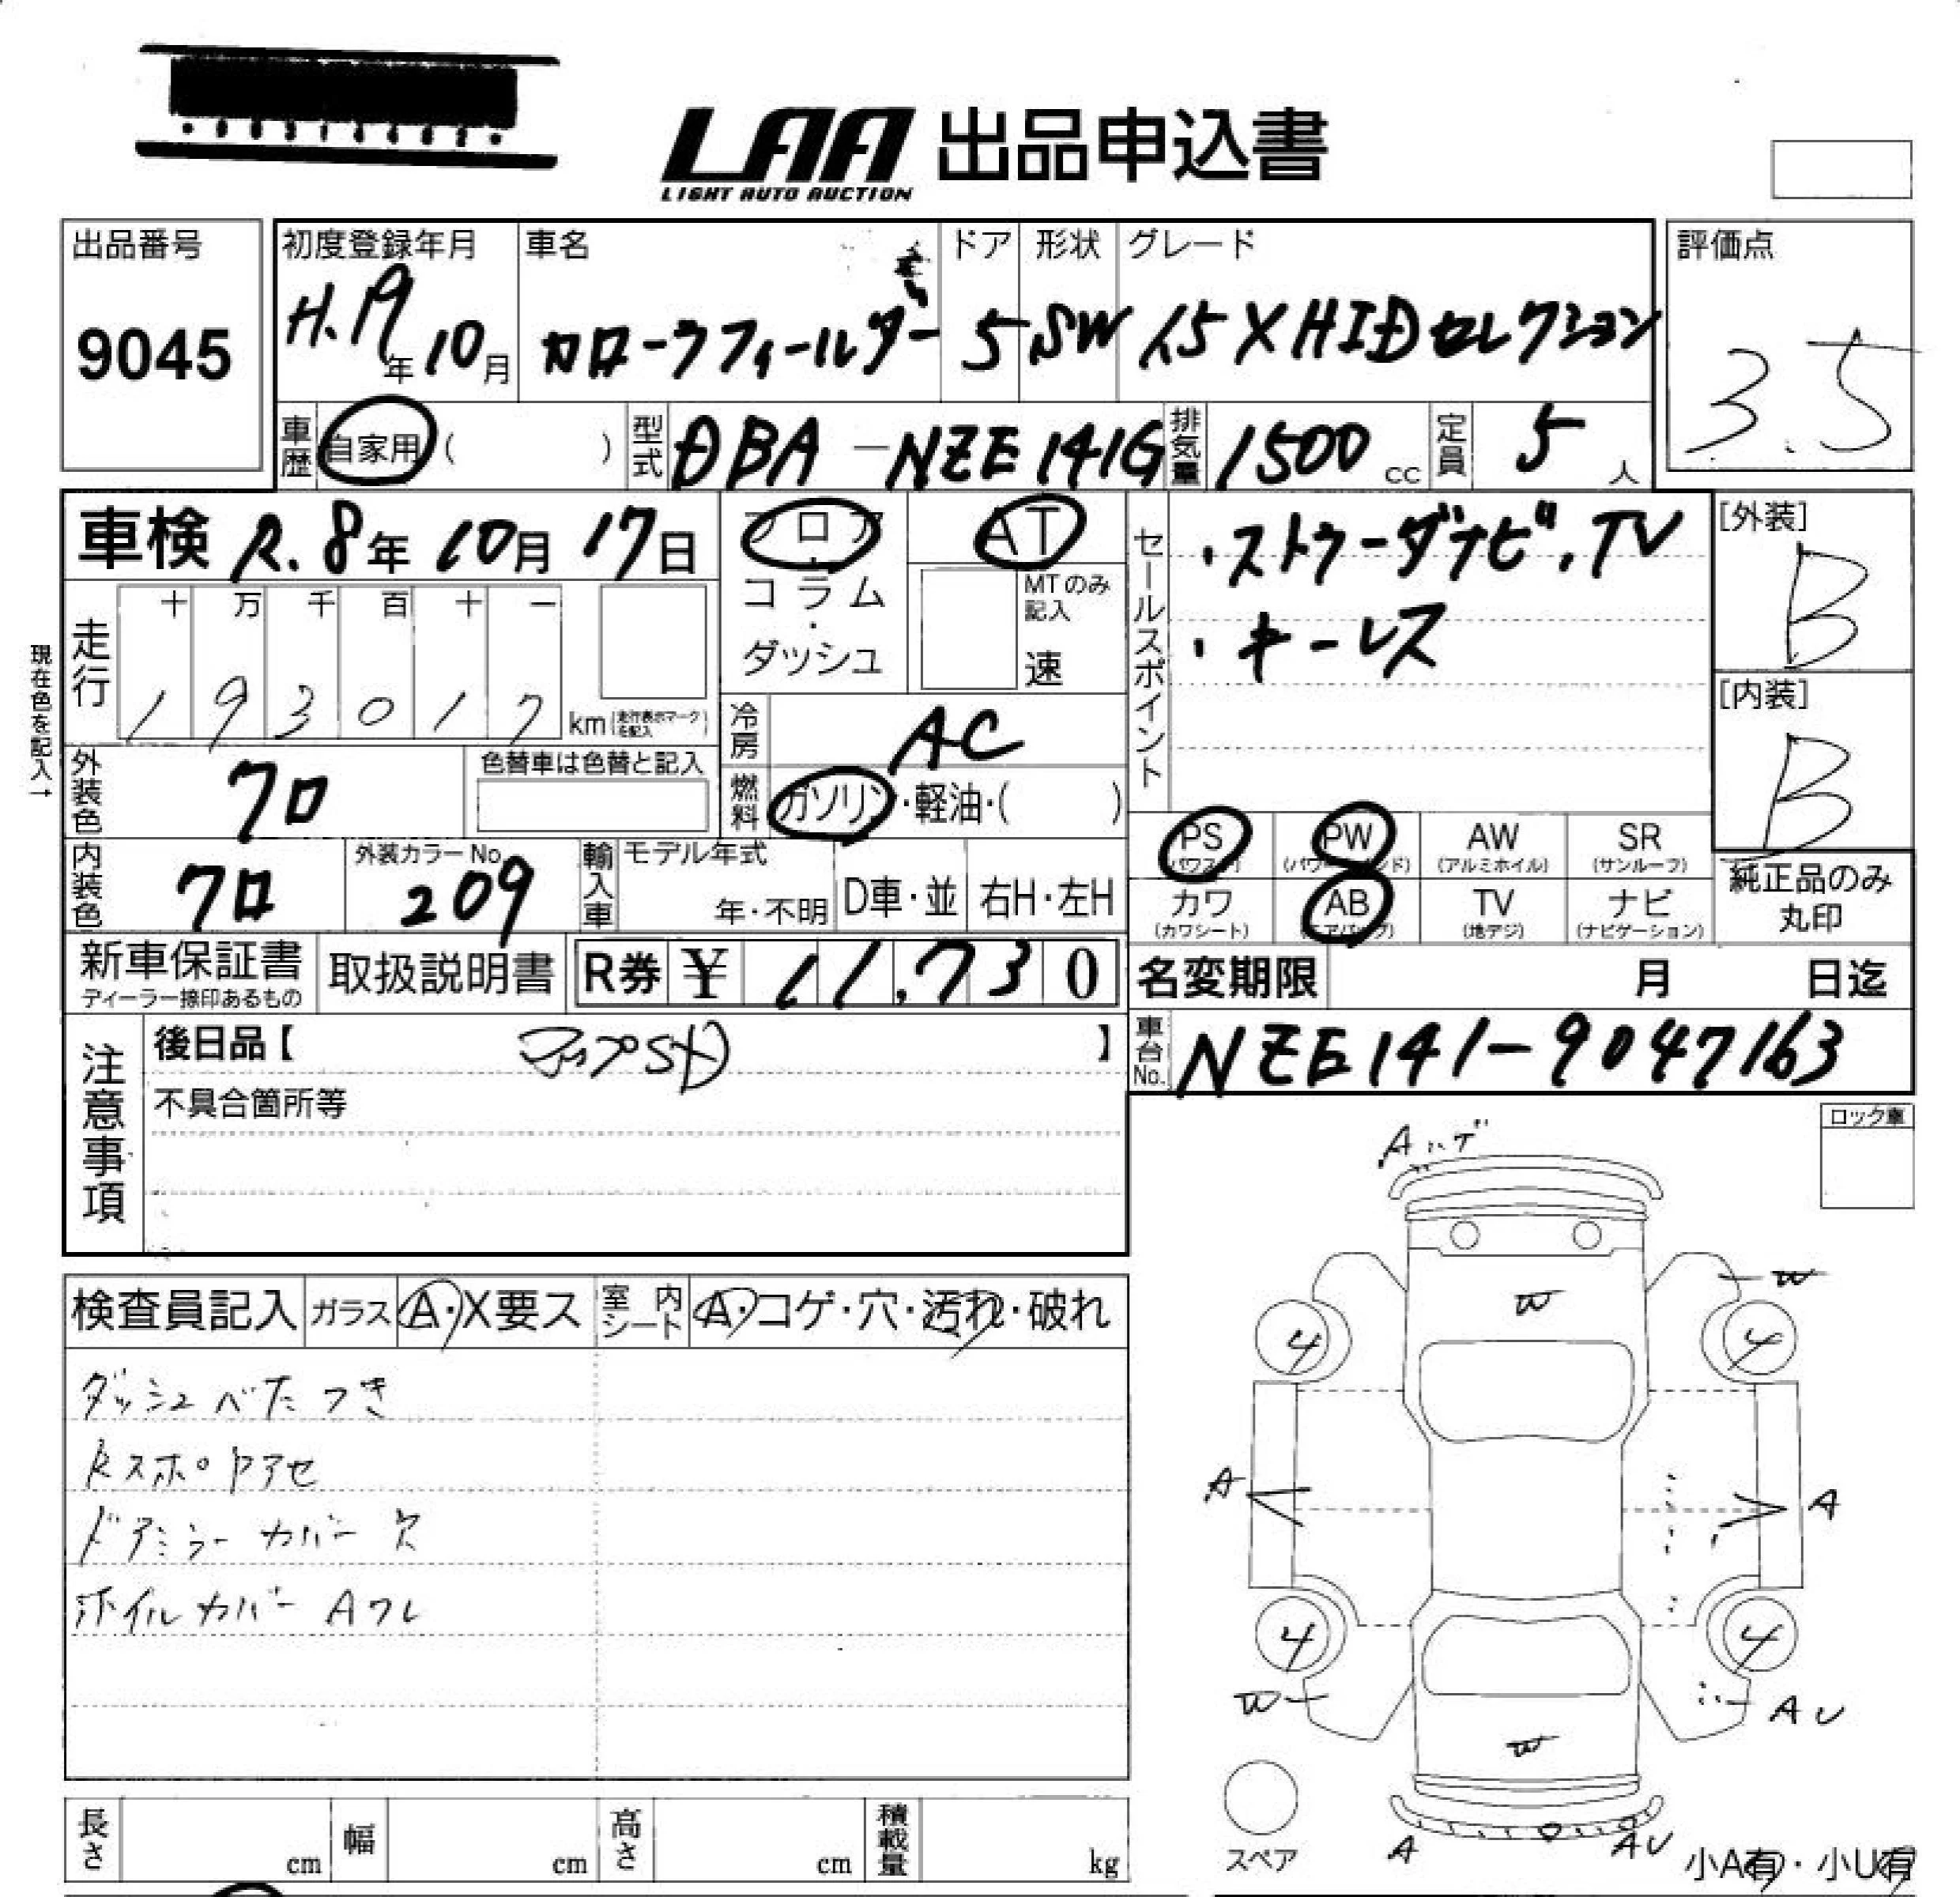 LAA 出品申込書
LIGHT AUTO AUCTION
出品番号 初度登録年月 車名 ドア 形状 グレード 評価点
9045 H.19年10月 カローラフィールダー 5 SW 1.5X HIDセレクション 3.5
車歴 自家用( ) 型式 DBA-NZE141G 排気量 1500cc 定員 5人
車検 R.8年10月17日 フロア・コラム・ダッシュ AT
MTのみ記入 速
セールスポイント
・ストラーダナビ,TV
・キーレス
[外装] B
[内装] B
現在色を記入→
走行 十 万 千 百 十 一
1 9 3 0 1 7 km(走行表示マークを記入)
冷房 AC
外装色 クロ 色替車は色替と記入
燃料 ガソリン・軽油・( )
PS(パワステ) PW(パワーウインド) AW(アルミホイル) SR(サンルーフ)
内装色 クロ 外装カラーNo. 209 輸入車 モデル年式 年・不明 D車・並 右H・左H
カワ(カワシート) AB(エアバッグ) TV(地デジ) ナビ(ナビゲーション)
純正品のみ丸印
新車保証書 ディーラー捺印あるもの 取扱説明書 R券 ¥ 11,730
名変期限 月 日迄
車台No. NZE141-9047163
注意事項 後日品【 マップSD 】
不具合箇所等
ロック車
検査員記入 ガラス A・X要ス 室内シート A・コゲ・穴・汚れ・破れ
ダッシュベタつき
Rスポ アセ
ドアミラーカバー欠
ホイルカバー Aワレ
Aハゲ
W
W
4 4
A A
4 4
W AU
W
A AU
スペア
小A有・小U有
長さ cm 幅 cm 高さ cm 積載量 kg